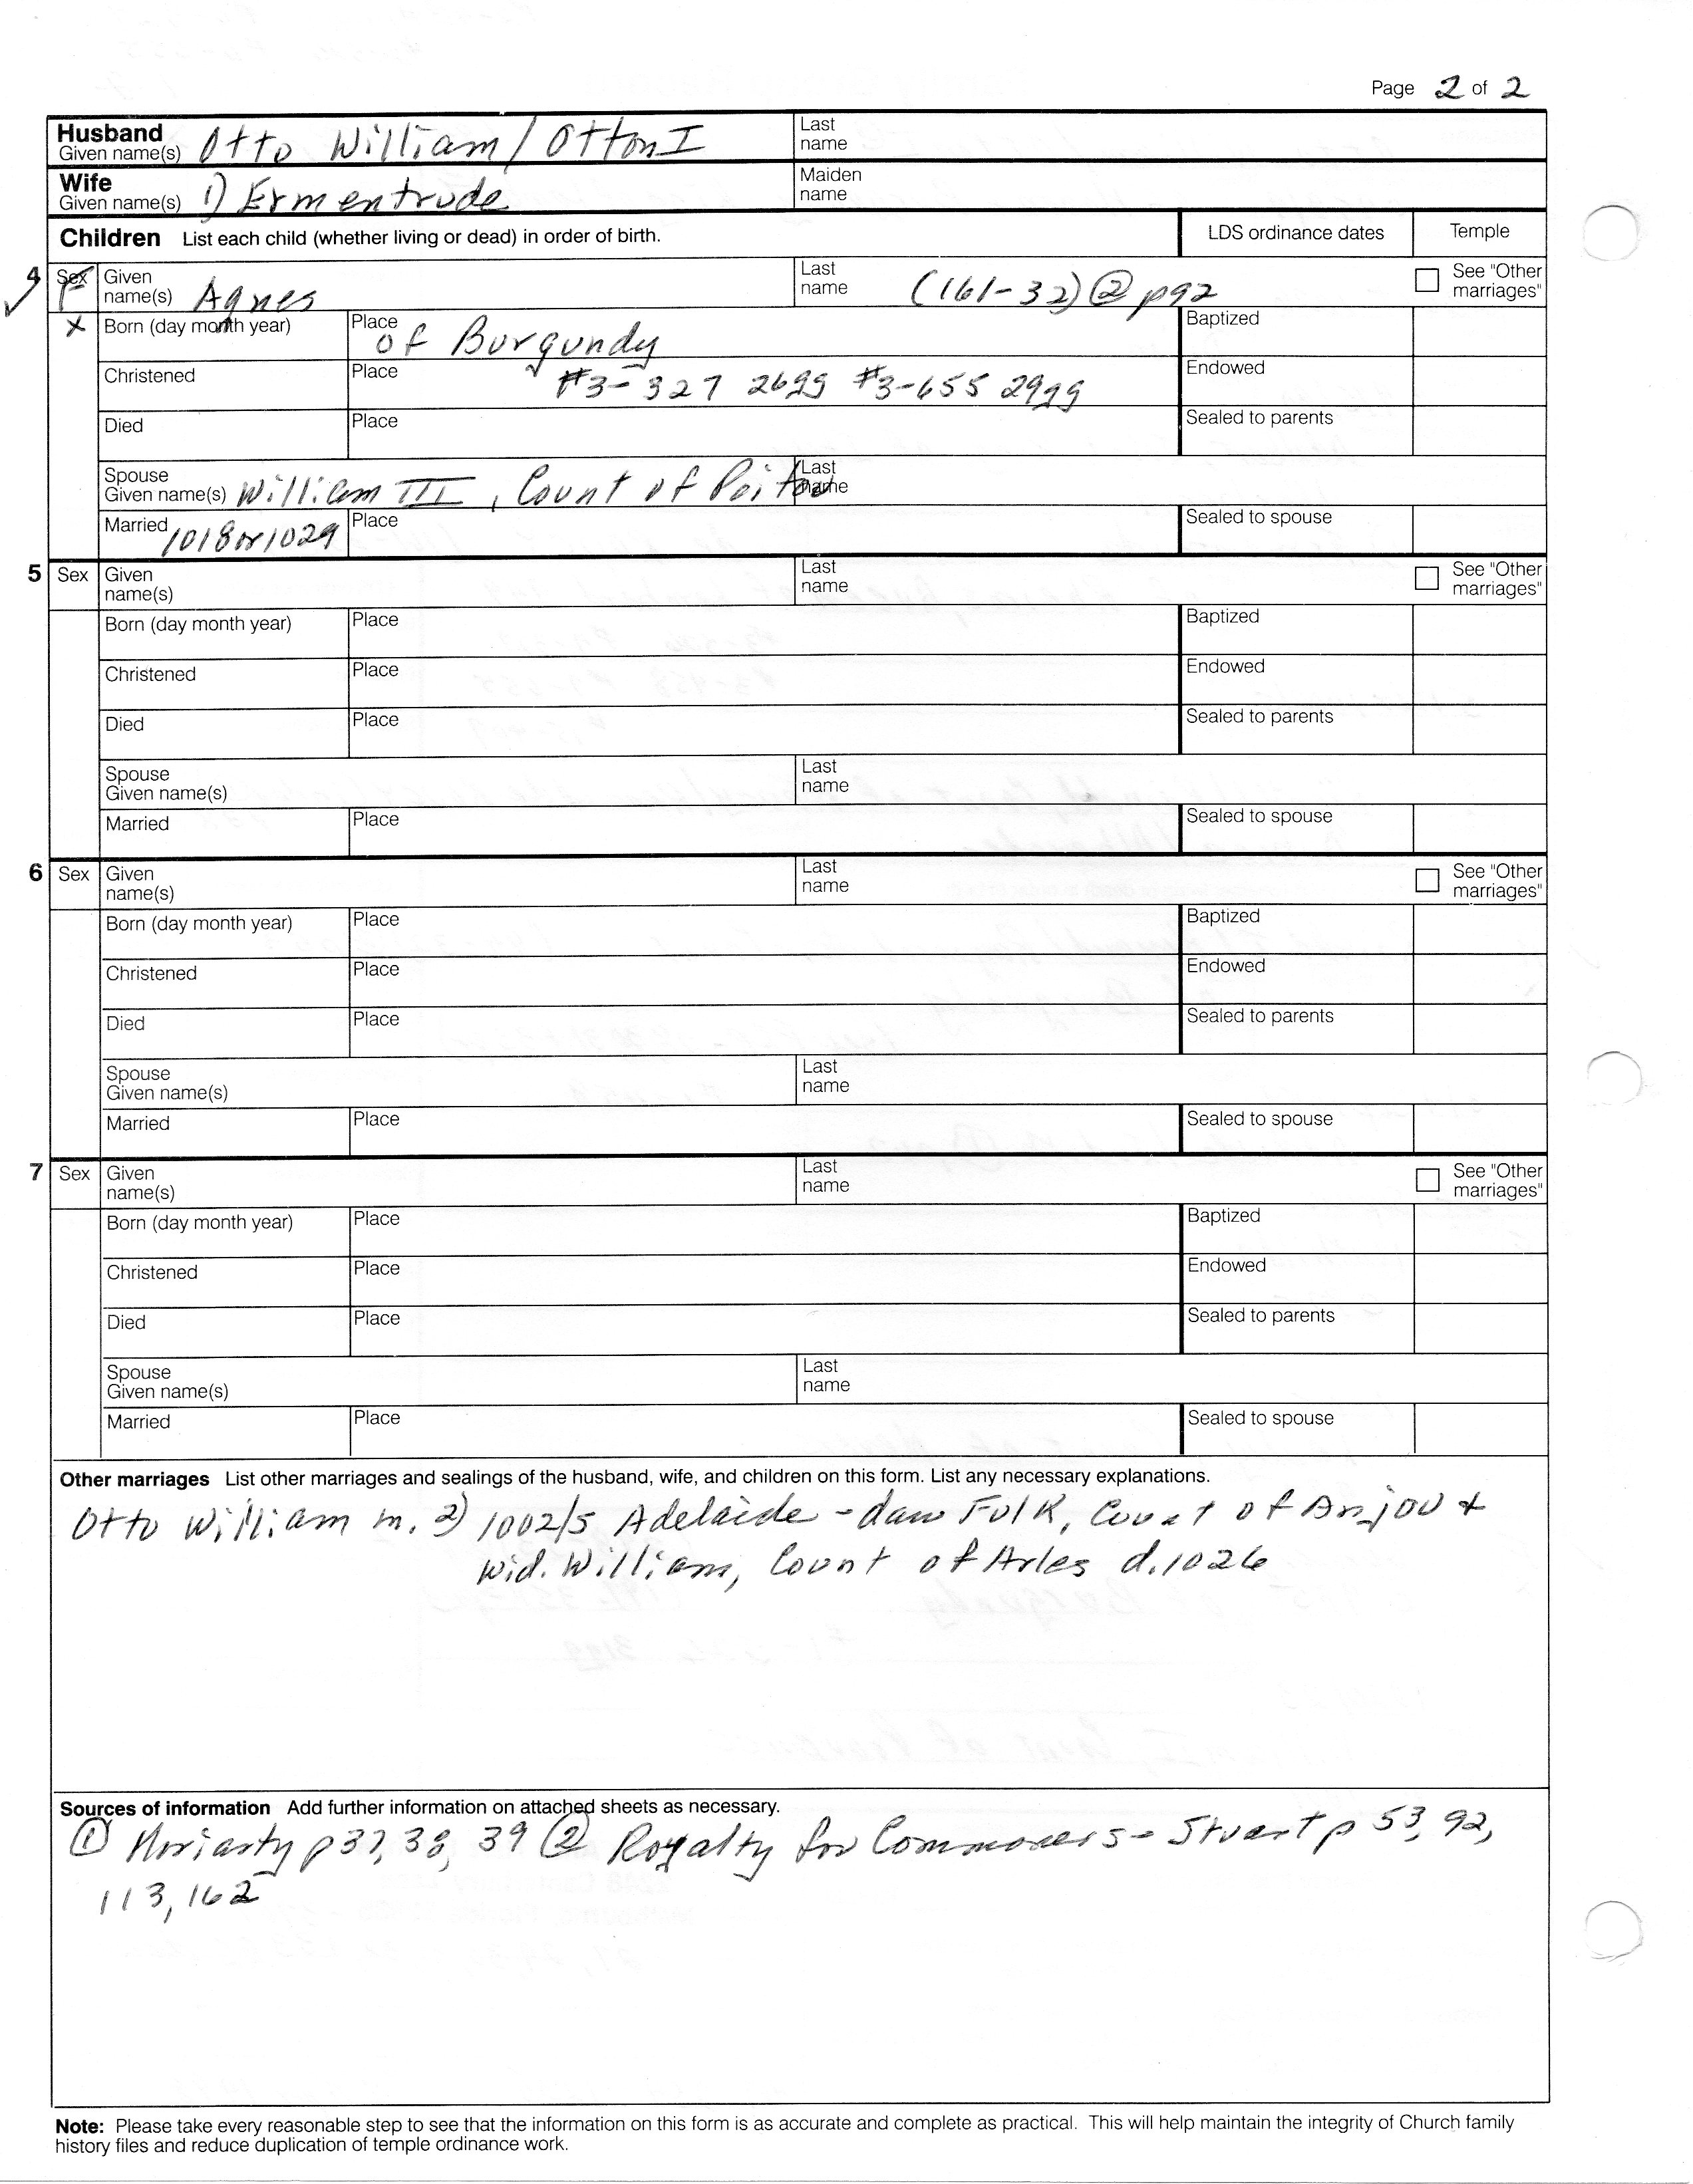 Page 2 of 2
Husband
Given name(s) Otto William / Otton I
Last
name
Wife
Given name(s) 1) Ermentrude
Maiden
name
Children List each child (whether living or dead) in order of birth.
LDS ordinance dates
Temple
4 Sex F
Given
name(s) Agnes
Last
name (161-32) @ p92
See "Other
marriages"
X Born (day month year)
Place of Burgundy
Baptized
Christened
Place #3-327 26gg #3-655 29gg
Endowed
Died
Place
Sealed to parents
Spouse
Given name(s) William III, Count of Poitou
Last
name
Married 1018 or 1029
Place
Sealed to spouse
5 Sex
Given
name(s)
Last
name
See "Other
marriages"
Born (day month year)
Place
Baptized
Christened
Place
Endowed
Died
Place
Sealed to parents
Spouse
Given name(s)
Last
name
Married
Place
Sealed to spouse
6 Sex
Given
name(s)
Last
name
See "Other
marriages"
Born (day month year)
Place
Baptized
Christened
Place
Endowed
Died
Place
Sealed to parents
Spouse
Given name(s)
Last
name
Married
Place
Sealed to spouse
7 Sex
Given
name(s)
Last
name
See "Other
marriages"
Born (day month year)
Place
Baptized
Christened
Place
Endowed
Died
Place
Sealed to parents
Spouse
Given name(s)
Last
name
Married
Place
Sealed to spouse
Other marriages List other marriages and sealings of the husband, wife, and children on this form. List any necessary explanations.
Otto William m. 2) 1002/5 Adelaide - dau Fulk, Count of Anjou +
Wid. William, Count of Arles d. 1026
Sources of information Add further information on attached sheets as necessary.
① Moriarty p 37, 38, 39 ② Royalty for Commoners - Stuart p 53, 92,
113, 162
Note: Please take every reasonable step to see that the information on this form is as accurate and complete as practical. This will help maintain the integrity of Church family
history files and reduce duplication of temple ordinance work.